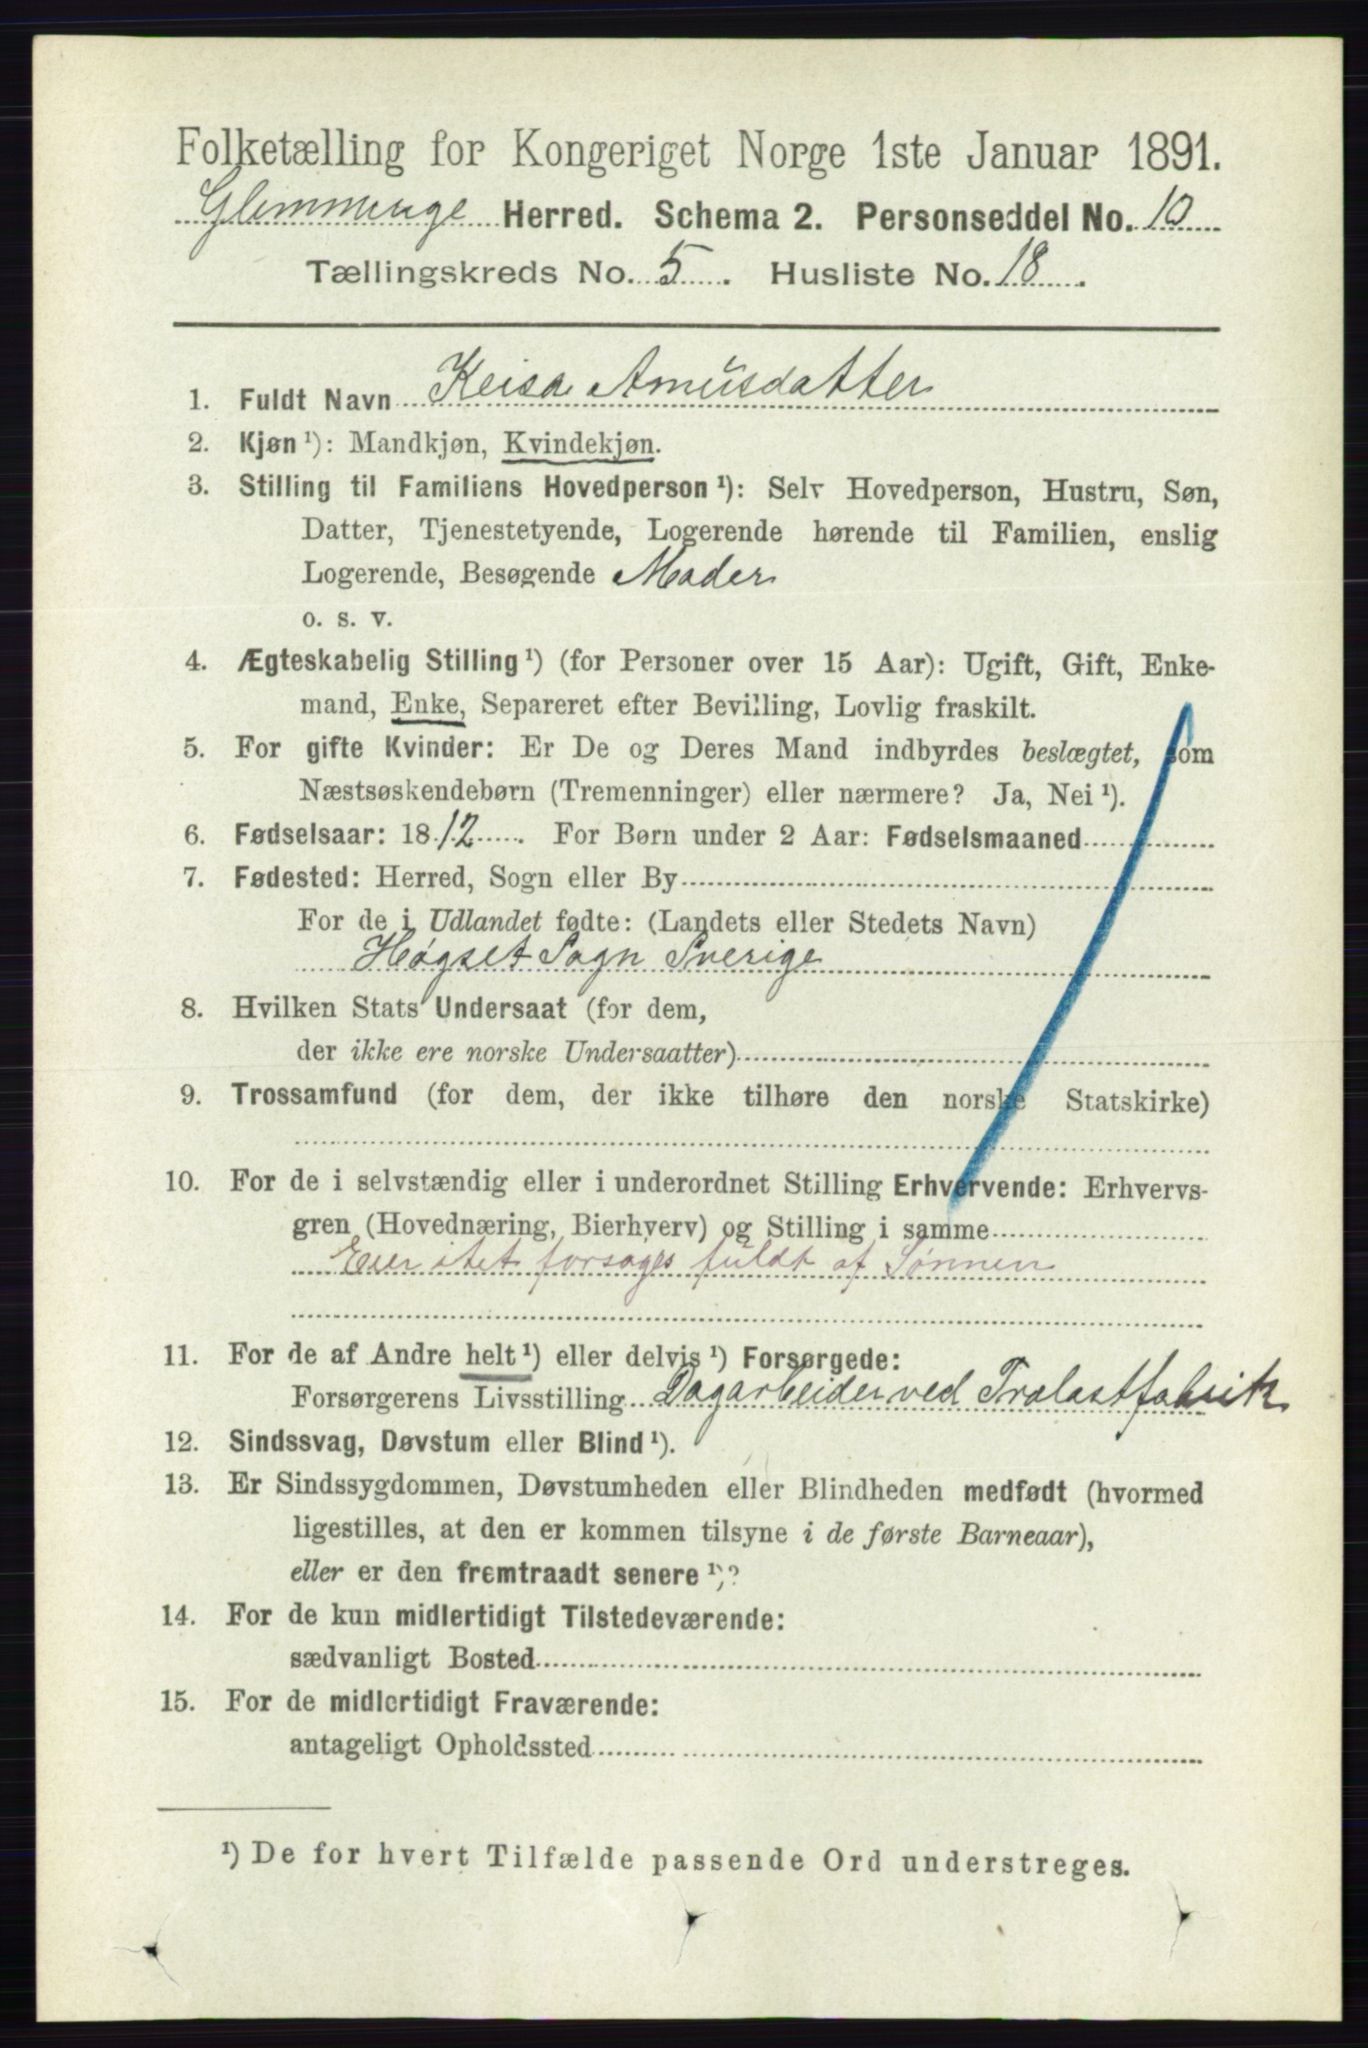 Folketælling for Kongeriget Norge 1ste Januar 1891.
Glemminge Herred. Schema 2. Personseddel No. 10
Tællingskreds No. 5. Husliste No. 18.
1. Fuldt Navn Keisa Amusdatter
2. Kjøn ¹): Mandkjøn, Kvindekjøn.
3. Stilling til Familiens Hovedperson ¹): Selv Hovedperson, Hustru, Søn,
Datter, Tjenestetyende, Logerende hørende til Familien, enslig
Logerende, Besøgende Moder
o. s. v.
4. Ægteskabelig Stilling ¹) (for Personer over 15 Aar): Ugift, Gift, Enke-
mand, Enke, Separeret efter Bevilling, Lovlig fraskilt.
5. For gifte Kvinder: Er De og Deres Mand indbyrdes beslægtet, som
Næstsøskendebørn (Tremenninger) eller nærmere? Ja, Nei ¹).
6. Fødselsaar: 1812. For Børn under 2 Aar: Fødselsmaaned
7. Fødested: Herred, Sogn eller By
For de i Udlandet fødte: (Landets eller Stedets Navn)
Høgset Sogn Sverige
8. Hvilken Stats Undersaat (for dem,
der ikke ere norske Undersaatter)
9. Trossamfund (for dem, der ikke tilhøre den norske Statskirke)
10. For de i selvstændig eller i underordnet Stilling Erhvervende: Erhvervs-
gren (Hovednæring, Bierhverv) og Stilling i samme
Eier itet forsøges fuldt af Sønnen
11. For de af Andre helt ¹) eller delvis ¹) Forsørgede:
Forsørgerens Livsstilling Dagarbeider ved Trælastfabrik
12. Sindssvag, Døvstum eller Blind ¹).
13. Er Sindssygdommen, Døvstumheden eller Blindheden medfødt (hvormed
ligestilles, at den er kommen tilsyne i de første Barneaar),
eller er den fremtraadt senere ¹)?
14. For de kun midlertidigt Tilstedeværende:
sædvanligt Bosted
15. For de midlertidigt Fraværende:
antageligt Opholdssted
¹) De for hvert Tilfælde passende Ord understreges.